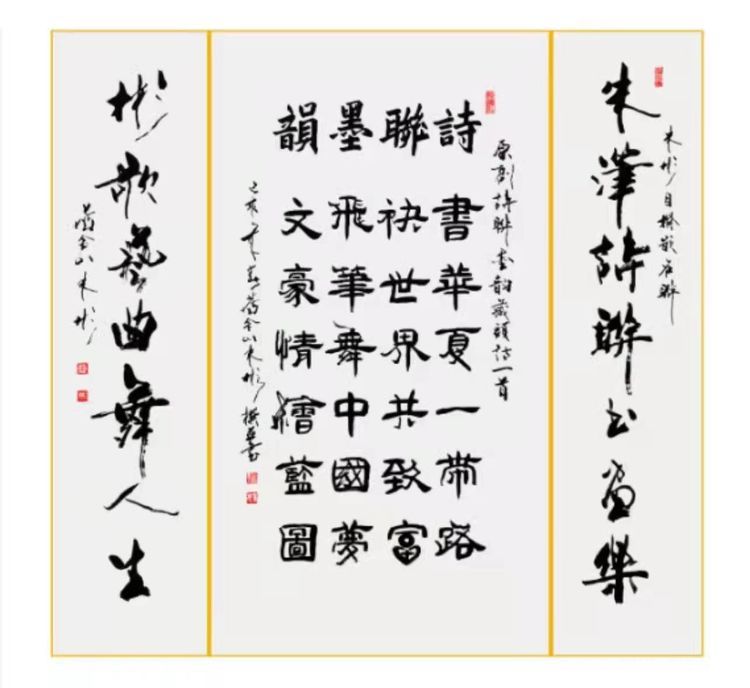 朱彬自撰嵌名聯
朱筆詩聯书畫樂
原創詩聯墨韻藏頭詩一首
詩書華夏一帶路
聯袂世界共致富
墨飛筆舞中國夢
韻文豪情繪藍圖
己亥年春金山朱彬撰並書
彬歌藝曲舞人生
金山朱彬